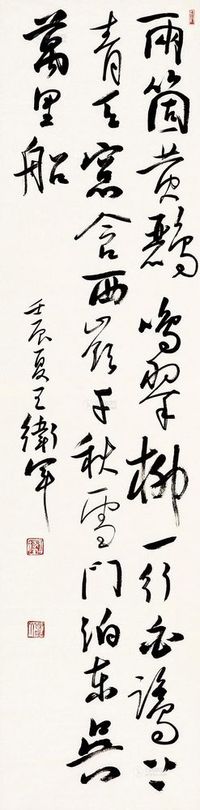 兩箇黄鸝鳴翠柳一行白鷺上
青天窓含西嶺千秋雪門泊東吳
萬里船
壬辰夏王衛軍